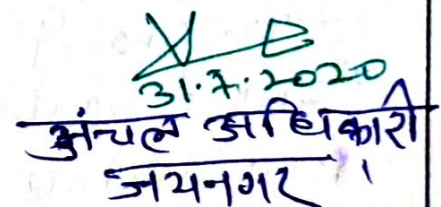 31.7.2020
अंचल अधिकारी
जयनगर ।